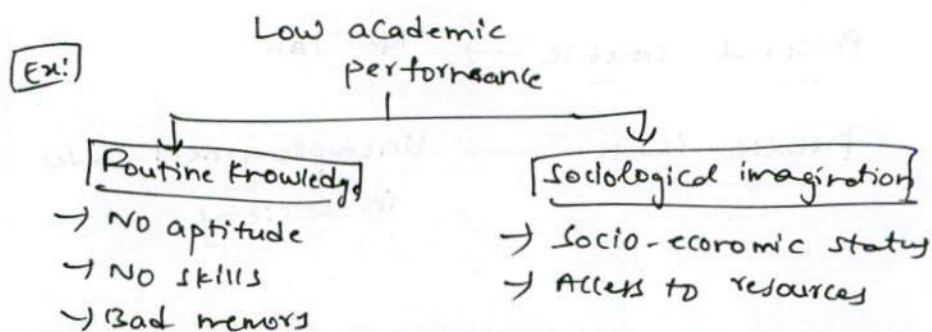 Low academic
performance
Ex:
Routine knowledge
→ No aptitude
→ No skills
→ Bad memory
Sociological imagination
→ Socio-economic status
→ Access to resources